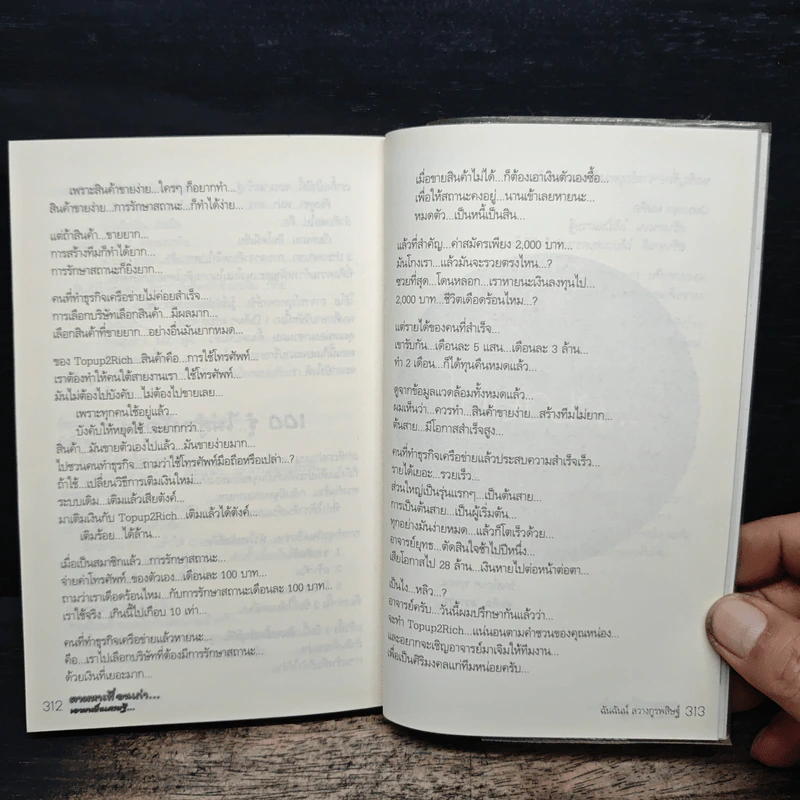 เพราะสินค้าขายง่าย...ใครๆ ก็อยากทำ...
สินค้าขายง่าย...การรักษาสถานะ...ก็ทำได้ง่าย...
แต่ถ้าสินค้า...ขายยาก...
การสร้างทีมก็ทำได้ยาก...
การรักษาสถานะก็ยิ่งยาก...
คนที่ทำธุรกิจเครือข่ายไม่ค่อยสำเร็จ...
การเลือกบริษัทเลือกสินค้า...มีผลมาก...
เลือกสินค้าที่ขายยาก...อย่างอื่นมันยากหมด...
ของ Topup2Rich...สินค้าคือ...การใช้โทรศัพท์...
เราต้องทำให้คนใต้สายงานเรา...ใช้โทรศัพท์...
มันไม่ต้องไปบังคับ...ไม่ต้องไปขายเลย...
เพราะทุกคนใช้อยู่แล้ว...
บังคับให้หยุดใช้...จะยากกว่า...
สินค้า...มันขายตัวเองไปแล้ว...มันขายง่ายมาก...
ไปชวนคนทำธุรกิจ...ถามว่าใช้โทรศัพท์มือถือหรือเปล่า...?
ถ้าใช้...เปลี่ยนวิธีการเติมเงินใหม่...
ระบบเดิม...เติมแล้วเสียตังค์...
มาเติมเงินกับ Topup2Rich...เติมแล้วได้ตังค์...
เติมร้อย...ได้ล้าน...
เมื่อเป็นสมาชิกแล้ว...การรักษาสถานะ...
จ่ายค่าโทรศัพท์ ของตัวเอง...เดือนละ 100 บาท...
ถามว่าเราเดือดร้อนไหม...กับการรักษาสถานะเดือนละ 100 บาท...
เราใช้จริง...เกินนี้ไปเกือบ 10 เท่า...
คนที่ทำธุรกิจเครือข่ายแล้วหายนะ...
คือ...เราไปเลือกบริษัทที่ต้องมีการรักษาสถานะ...
ด้วยเงินที่เยอะมาก...
312
เมื่อขายสินค้าไม่ได้...ก็ต้องเอาเงินตัวเองซื้อ...
เพื่อให้สถานะคงอยู่...นานเข้าเลยหายนะ...
หมดตัว...เป็นหนี้เป็นสิน...
แล้วที่สำคัญ...ค่าสมัครเพียง 2,000 บาท...
มันโกงเรา...แล้วมันจะรวยตรงไหน...?
ซวยที่สุด...โดนหลอก...เราหายนะเงินลงทุนไป...
2,000 บาท...ชีวิตเดือดร้อนไหม...?
แต่รายได้ของคนที่สำเร็จ...
เขารับกัน...เดือนละ 5 แสน...เดือนละ 3 ล้าน...
ทำ 2 เดือน...ก็ได้ทุนคืนหมดแล้ว...
ดูจากข้อมูลแวดล้อมทั้งหมดแล้ว...
ผมเห็นว่า...ควรทำ...สินค้าขายง่าย...สร้างทีมไม่ยาก...
ต้นสาย...มีโอกาสสำเร็จสูง...
คนที่ทำธุรกิจเครือข่ายแล้วประสบความสำเร็จเร็ว...
รายได้เยอะ...รวยเร็ว...
ส่วนใหญ่เป็นรุ่นแรกๆ...เป็นต้นสาย...
การเป็นต้นสาย...เป็นผู้เริ่มต้น...
ทุกอย่างมันง่ายหมด...แล้วก็โตเร็วด้วย...
อาจารย์ยุทธ...ตัดสินใจช้าไปปีหนึ่ง...
เสียโอกาสไป 28 ล้าน...เงินหายไปต่อหน้าต่อตา...
เป็นไง...หลิว...?
อาจารย์ครับ...วันนี้ผมปรึกษากันแล้วว่า...
จะทำ Topup2Rich...แน่นอนตามคำชวนของคุณหน่อง...
และอยากจะเชิญอาจารย์มาเจิมให้ทีมงาน...
เพื่อเป็นศิริมงคลแก่ทีมหน่อยครับ...
313